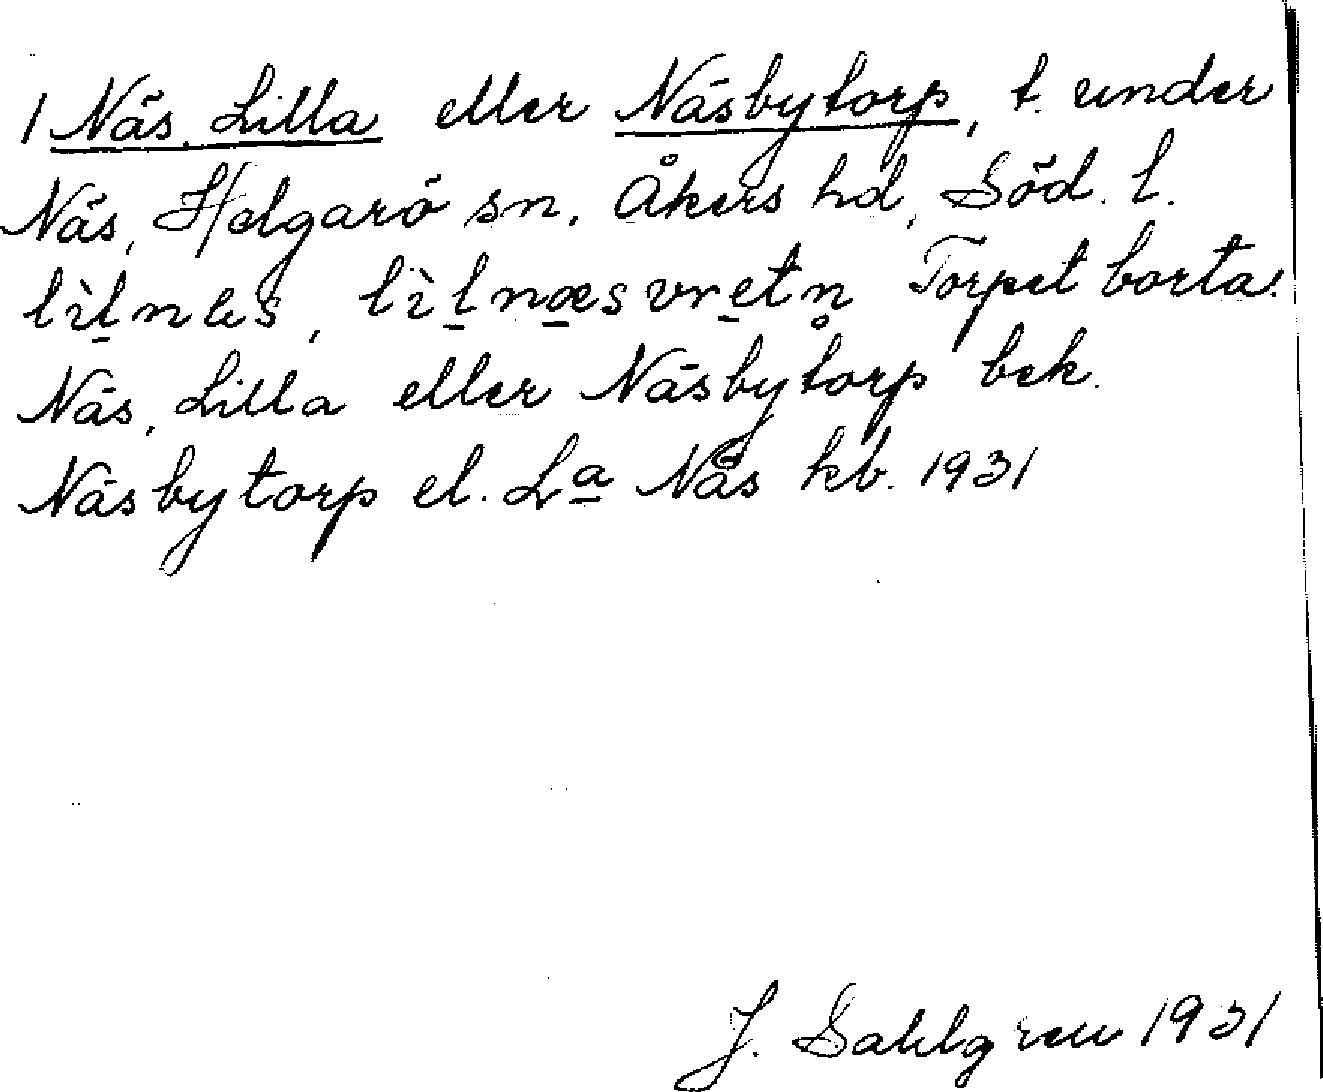 1 Näs, Lilla eller Näsbytorp, t. under
Näs, Helgarö sn, Åkers hd, Söd. l.
lìḻnæs, lìḻnæ̱svre̱tn̥ Torpet borta.
Näs, Lilla eller Näsbytorp bek.
Näsbytorp el. La Näs kb. 1931
J. Sahlgren 1931